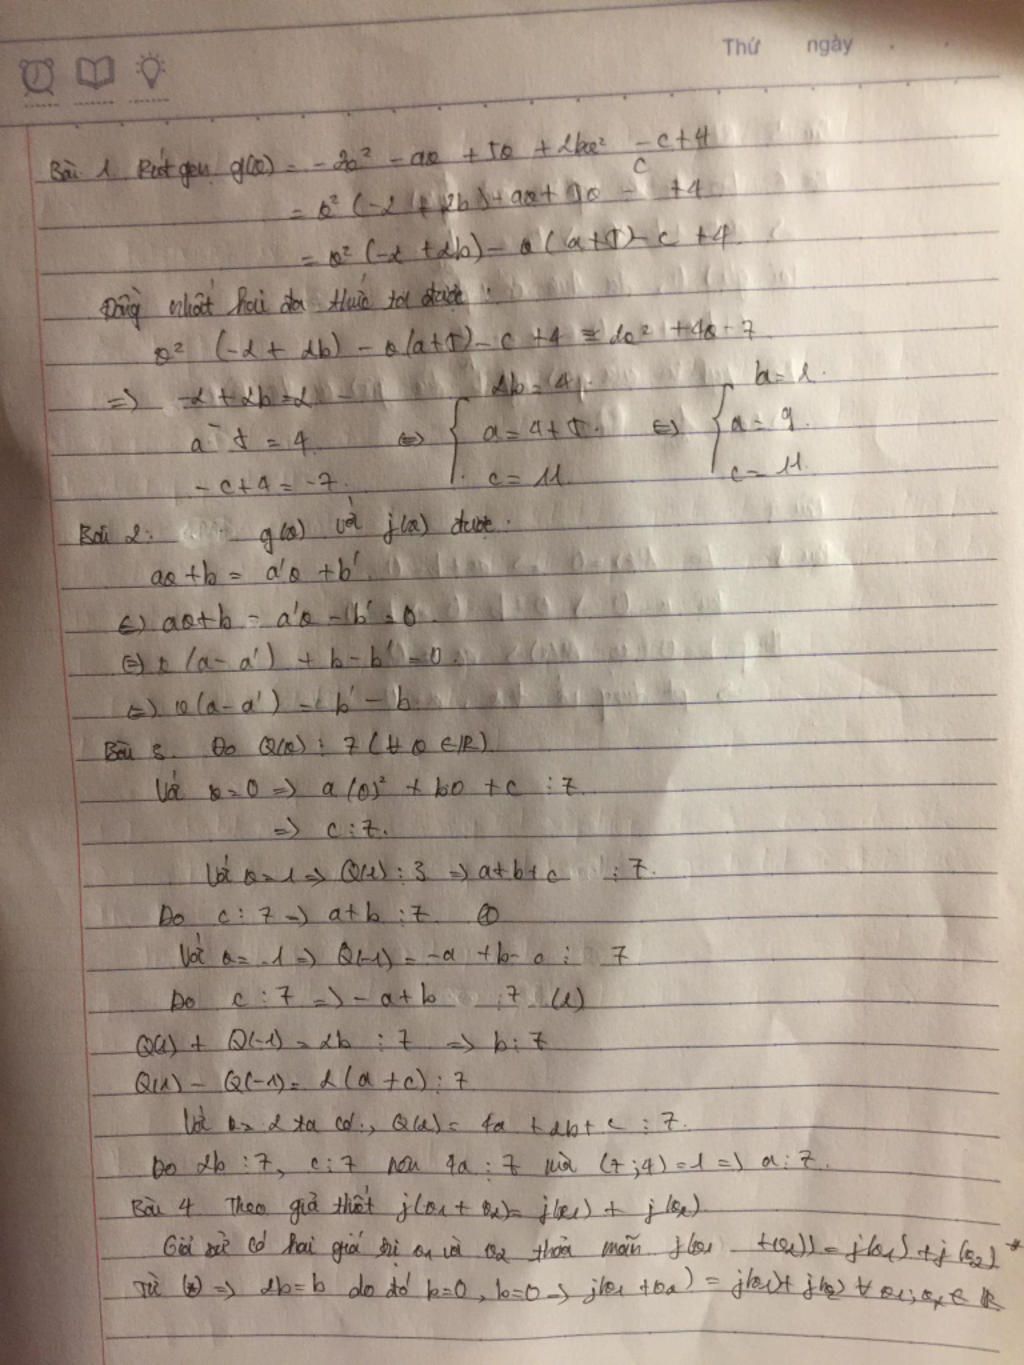 Thứ ngày
Bài 1 Rút gọn g(x) = -2x² - ax + 5x + 2bx² - c + 4
= x² (-2 + 2b) + ax + 5x - c + 4
= x² (-2 + 2b) - x (a+5) - c + 4
Đồng nhất hai đa thức ta được :
x² (-2 + 2b) - x(a+5) - c + 4 = 2x² + 4x - 7
=> -2 + 2b = 2 2b = 4. b = 2.
a - 5 = 4 <=> a = 4 + 5. <=> a = 9.
-c + 4 = -7. c = 11. c = 11
Bài 2: g(x) và f(x) được.
ax + b = a'x + b'
<=> ax + b = a'x - b' = 0
<=> x(a - a') + b - b' = 0.
<=> x(a - a') = b' - b
Bài 3. Do Q(x) ⋮ 7 (∀ x ∈ R)
Với x = 0 => a(0)² + b0 + c ⋮ 7
=> c ⋮ 7.
Với x = 1 => Q(1) ⋮ 3 => a + b + c ⋮ 7.
Do c ⋮ 7 => a + b ⋮ 7
Với x = -1 => Q(-1) = -a + b - c ⋮ 7
Do c ⋮ 7 => -a + b ⋮ 7 (2)
Q(1) + Q(-1) = 2b ⋮ 7 => b ⋮ 7
Q(1) - Q(-1) = 2(a + c) ⋮ 7
Với x = 2 ta có: Q(2) = 4a + 2b + c ⋮ 7.
Do 2b ⋮ 7, c ⋮ 7 nên 4a ⋮ 7 mà (7;4) = 1 => a ⋮ 7.
Bài 4 Theo giả thiết f(x1 + x2) = f(x1) + f(x2)
Giả sử có hai giá trị x1 và x2 thỏa mãn f(x1 + (x2)) = f(x1) + f(x2) *
Từ (*) => 2b = b do đó b = 0, b = 0 => f(x1 + x2) = f(x1) + f(x2) ∀ x1; x2 ∈ R